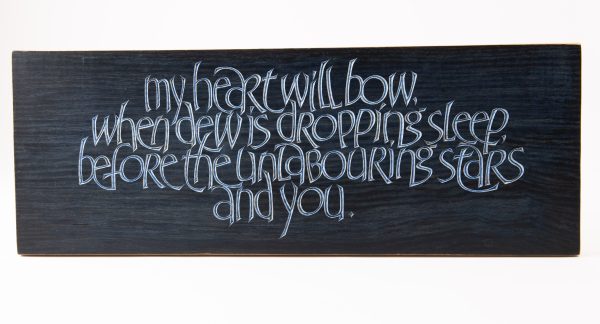 my heart will bow,
when dew is dropping sleep,
before the unlabouring stars
and you.